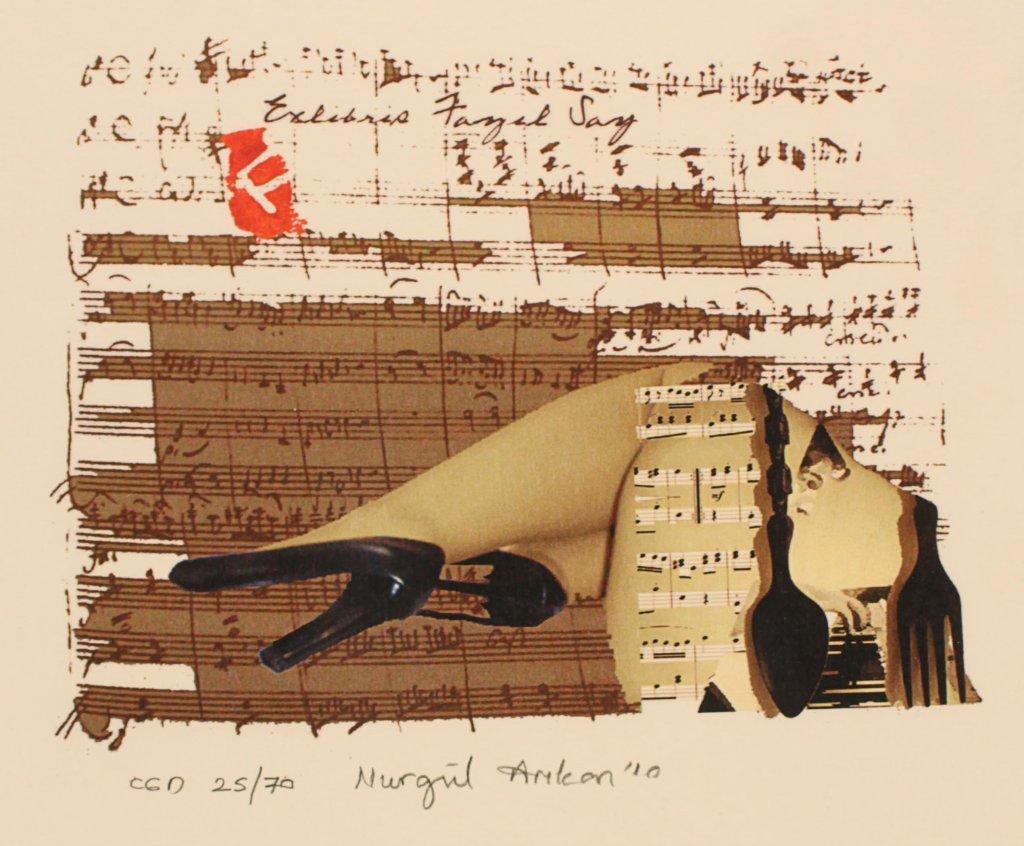 Exlibris Fazıl Say
mf
CGD 25/70 Nurgül Arıkan '10